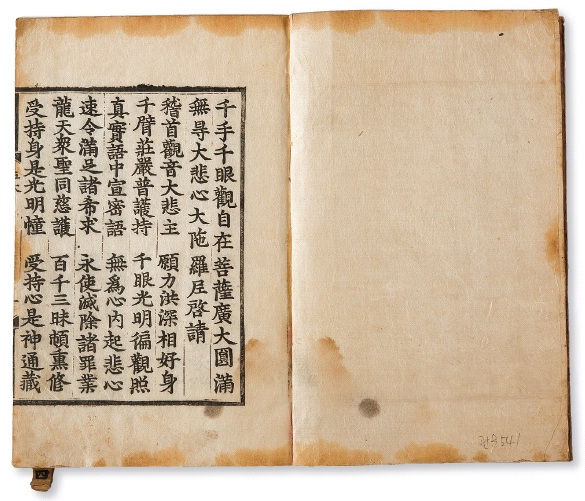 千手千眼觀自在菩薩廣大圓滿
無㝵大悲心大陁羅尼啓請
稽首觀音大悲主 願力洪深相好身
千臂莊嚴普護持 千眼光明徧觀照
真實語中宣密語 無爲心內起悲心
速令滿足諸希求 永使滅除諸罪業
龍天衆聖同慈護 百千三昧頓熏修
受持身是光明幢 受持心是神通藏
541